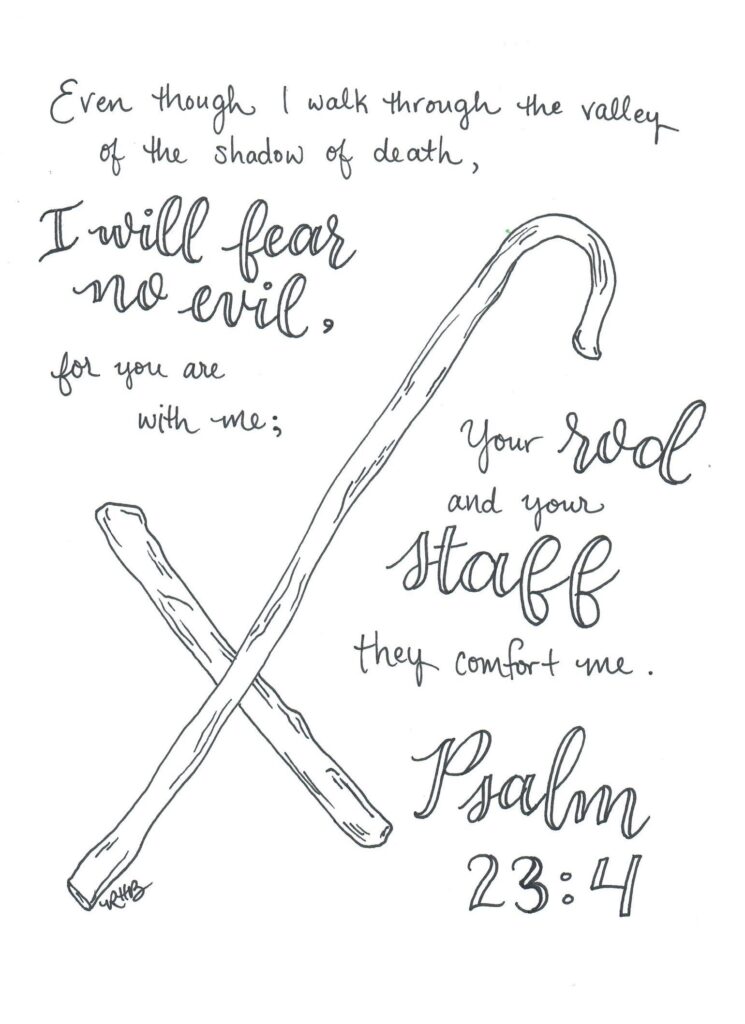 Even though I walk through the valley
of the shadow of death,
I will fear
no evil,
for you are
with me;
Your rod
and your
staff
they comfort me.
Psalm
23:4
RHB